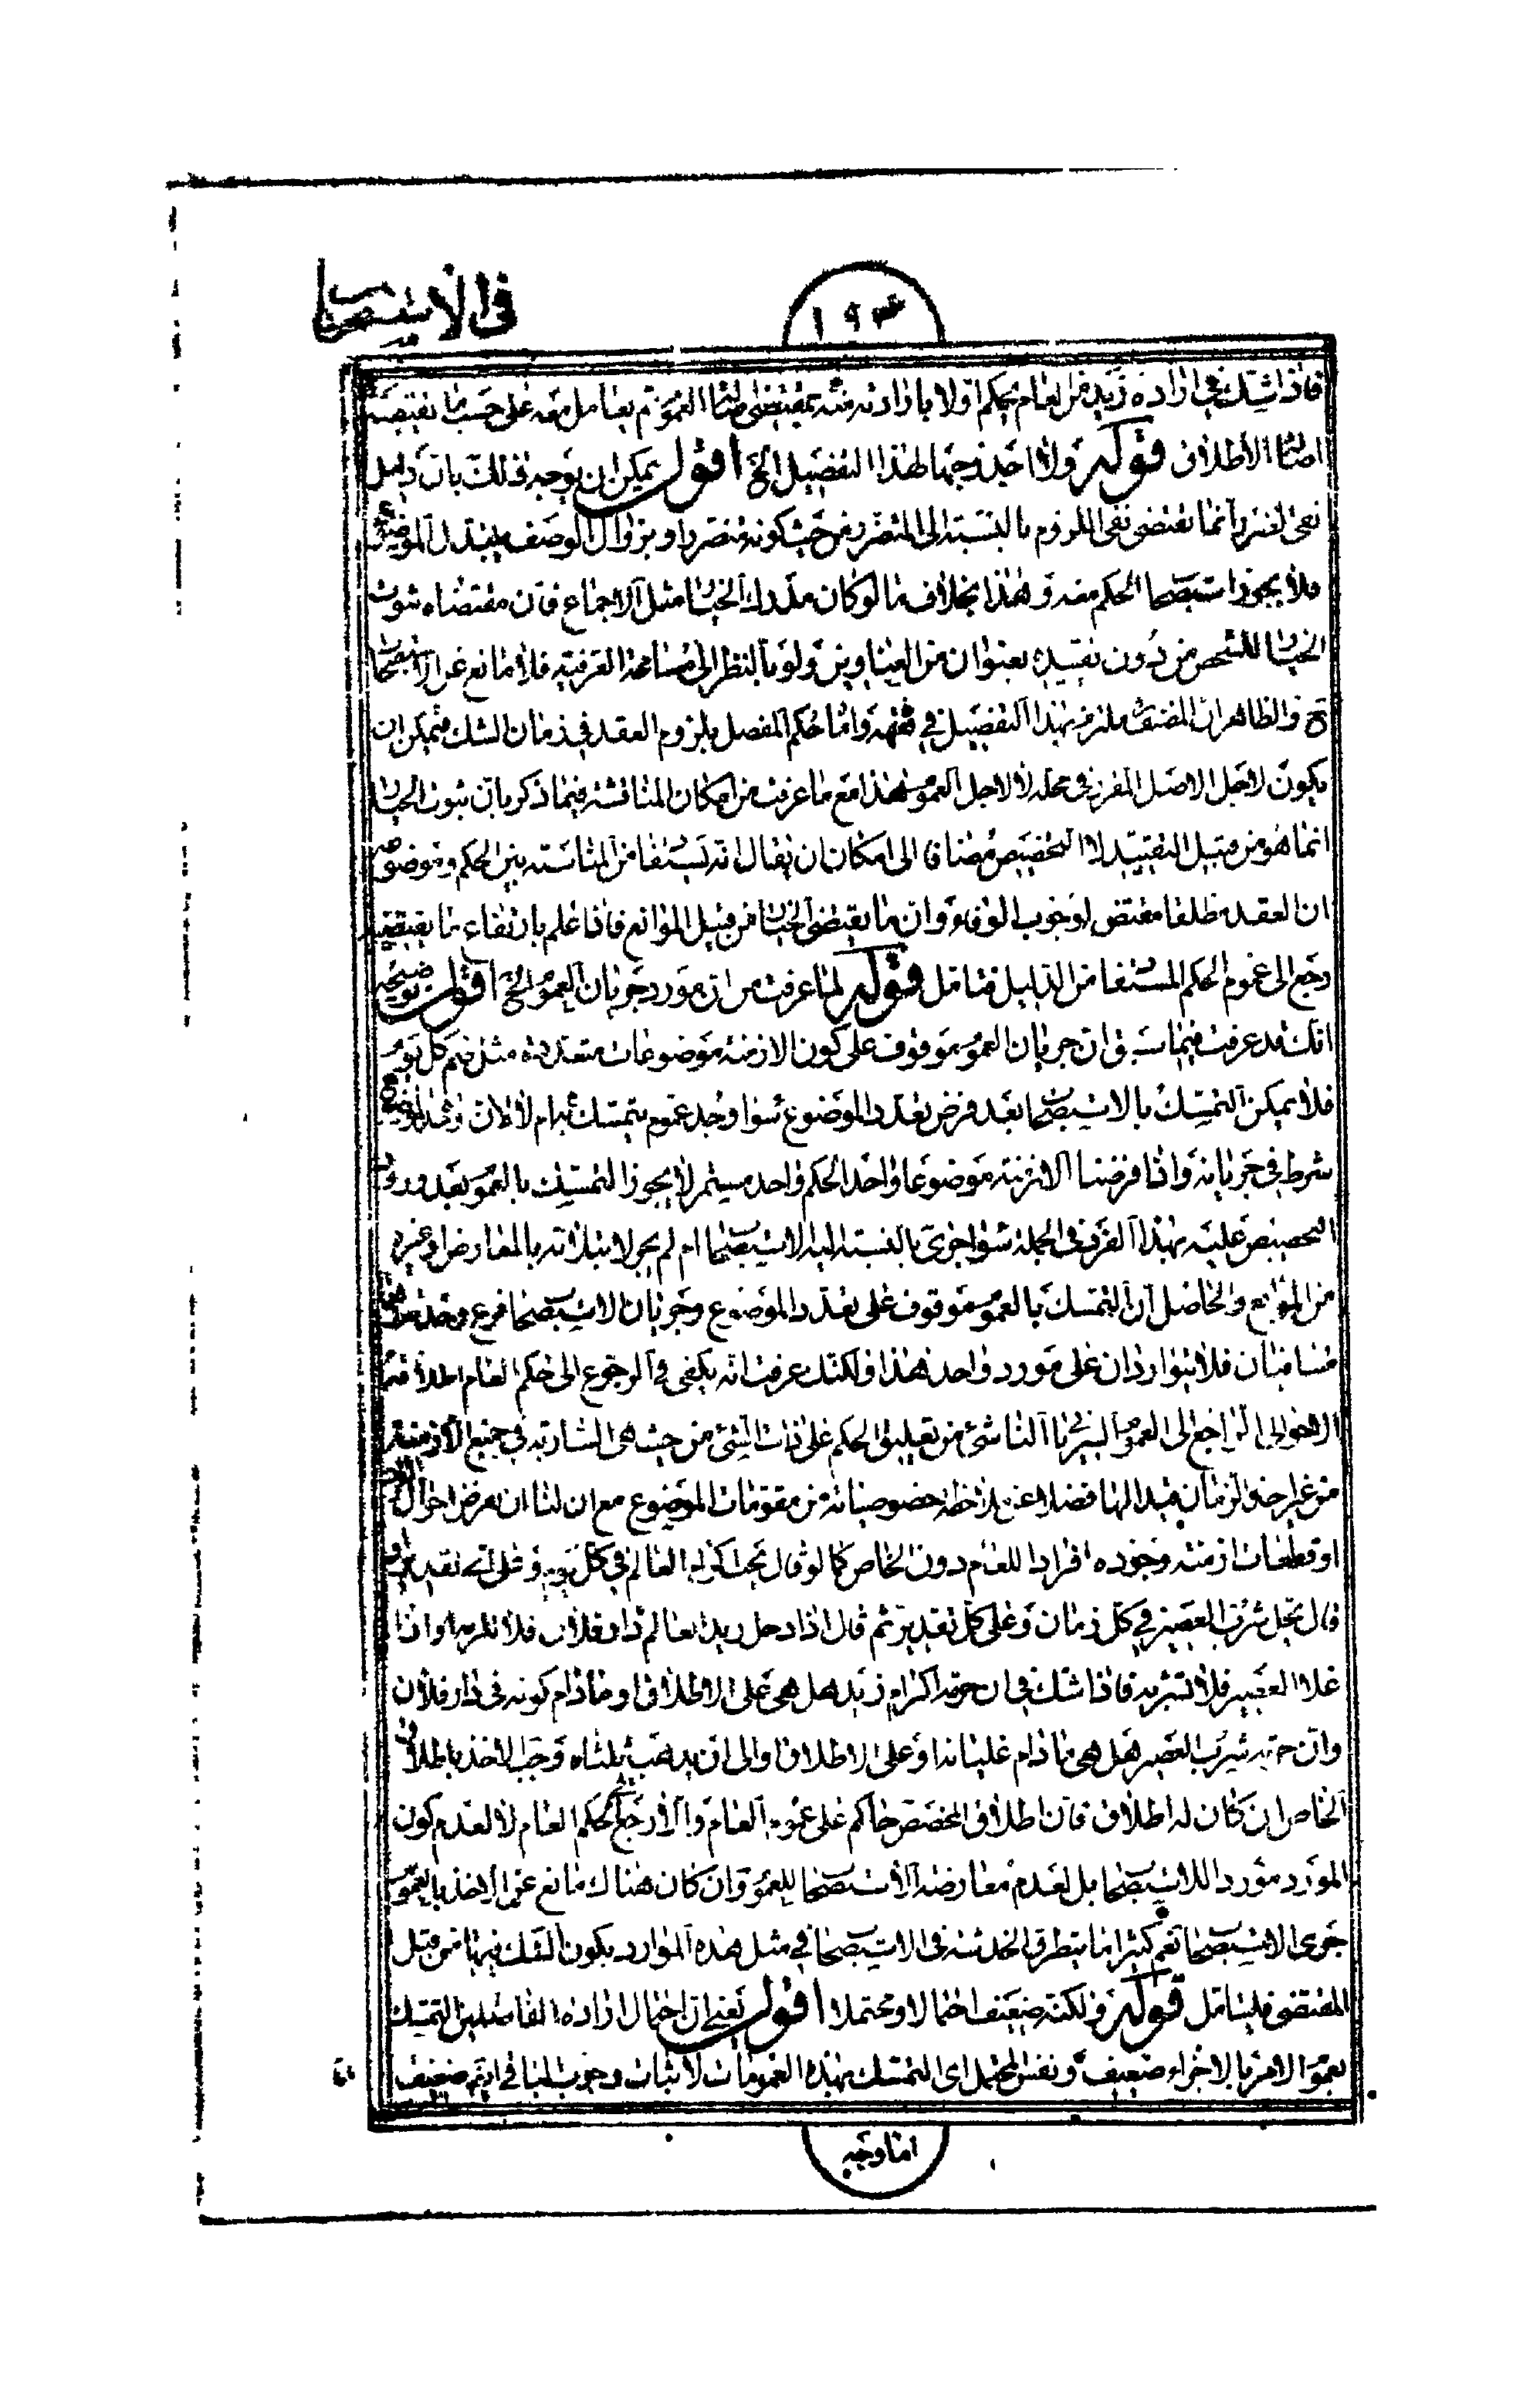 في الاستصحاب
١٩٣
فاذا شك في ارادة زيد من العام يحكم اولا بارادته منه بمقتضى اصالة العموم ثم يعامل معه على حسب ما تقتضيه
اصالة الاطلاق قوله ولا اجد وجها لهذا التفصيل الخ اقول يمكن ان يوجه ذلك بان دليل
نفى الضرر انما يقتضى نفى اللزوم بالنسبة الى المتضرر من حيث كونه متضررا وبزوال الوصف يتبدل الموضوع
فلا يجوز استصحاب الحكم معه وهذا بخلاف ما لو كان مدرك الخيار مثل الاجماع فان مقتضاه ثبوت
الخيار للشخص من دون تقييده بعنوان من العناوين ولو بالنظر الى مسامحة العرفية فلا مانع عن الاستصحاب
ح والظاهر ان المصنف ملتزم بهذا التفصيل في فقهه واما حكم المفصل بلزوم العقد في زمان الشك فيمكن ان
يكون لاجل الاصل المقرر في محله لا لاجل العموم هذا مع ما عرفت من امكان المناقشة فيما ذكر بان ثبوت الخيار
انما هو من قبيل التقييد لا التخصيص مضافا الى امكان ان يقال انه يستفاد من المناسبة بين الحكم وموضوعه
ان العقد مطلقا مقتض لوجوب الوفاء وان ما يقتضى الخيار من قبيل الموانع فاذا علم بارتفاء ما يقتضيه
رجع الى عموم الحكم المستفاد من الدليل فتامل قوله لما عرفت من ان مورد جريان العموم الخ اقول توضيحه
انك قد عرفت فيما سبق ان جريان العموم موقوف على كون الازمنة موضوعات متعددة مثل صم كل يوم
فلا يمكن التمسك بالاستصحاب بعد فرض تعدد الموضوع سواء وجد عموم يتمسك به ام لا لان وحدة الموضوع
شرط في جريانه واذا فرضنا الازمنة موضوعا واحدا لحكم واحد مستمر لا يجوز التمسك بالعموم بعد ورود
التخصيص عليه بهذا الفرد في الجملة سواء جرى بالنسبة اليه الاستصحاب ام لم يجر لابتلائه بالمعارض او غيره
من الموانع والحاصل ان التمسك بالعموم موقوف على تعدد الموضوع وجريان الاستصحاب فرع وحدته
متنافيان فلا يتواردان على مورد واحد هذا ولكنك عرفت انه يكفى في الرجوع الى حكم العام اطلاقه
الاحوالى الراجع الى العموم السرياني الناشئ من تعليق الحكم على ذات الشئ من حيث هى السارية في جميع الازمنة
من غير اخذ الزمان قيدا لها فضلا عن ملاحظة خصوصياته من مقومات الموضوع مع ان لنا ان نفرض احوال الفرد
او قطعات ازمنة وجوده افرادا للعام دون الخاص كما لو قال يجب اكرام العالم في كل يوم وعلى اى تقدير او
قال يحل شرب العصير في كل زمان وعلى كل تقدير ثم قال اذا دخل زيد العالم دار فلان فلا تكرمه او اذا
غلا العصير فلا تشربه فاذا شك في ان حرمة اكرام زيد هل هى على الاطلاق او ما دام كونه في دار فلان
وان حرمة شرب العصير هل هى ما دام غليانه او على الاطلاق والى ان يذهب ثلثاه وجب الاخذ باطلاق
الخاص ان كان له اطلاق فان اطلاق المخصص حاكم على عموم العام والا رجع لحكم العام لا لعدم كون
المورد موردا للاستصحاب بل لعدم معارضة الاستصحاب للعموم وان كان هناك مانع عن الاخذ بالعموم
جرى الاستصحاب نعم كثيرا ما يتطرق الخدشة في الاستصحاب في مثل هذه الموارد بكون الشك فيها من قبل
المقتضى فليتامل قوله ولكنه ضعيف احتمالا ومحتملا اقول يعنى ان احتمال ارادة الفاضلين التمسك
بعموم الامر بالاجزاء ضعيف ونفس المحتمل اى التمسك بهذه العمومات لاثبات وجوب الباقى ايضا ضعيف
اما وجه